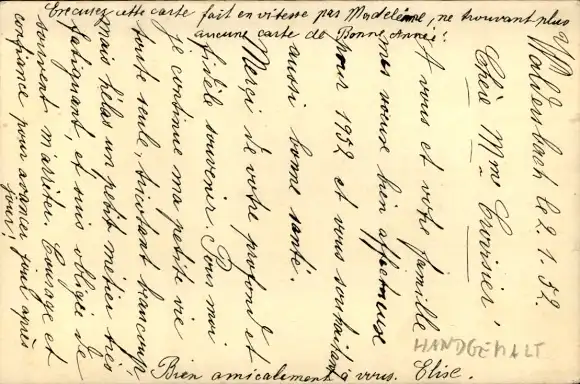 Waldersbach le 2.1.52.
Chère Mme Croisier!
A vous et votre famille
mes voeux bien affectueux
pour 1952 et vous souhaitant
aussi bonne santé.
Merci de votre profond et
fidèle souvenir. Pour moi
je continue ma petite vie
toute seule, tricotant beaucoup
mais hélas un petit métier très
fatiguant, et suis obligée de
souvent m'arrêter. Courage et
confiance pour avancer jour après
jour!
Bien amicalement à vous. Elise.
Excusez cette carte fait en vitesse par Madeleine, ne trouvant plus
aucune carte de Bonne Année!
HANDGEMALT